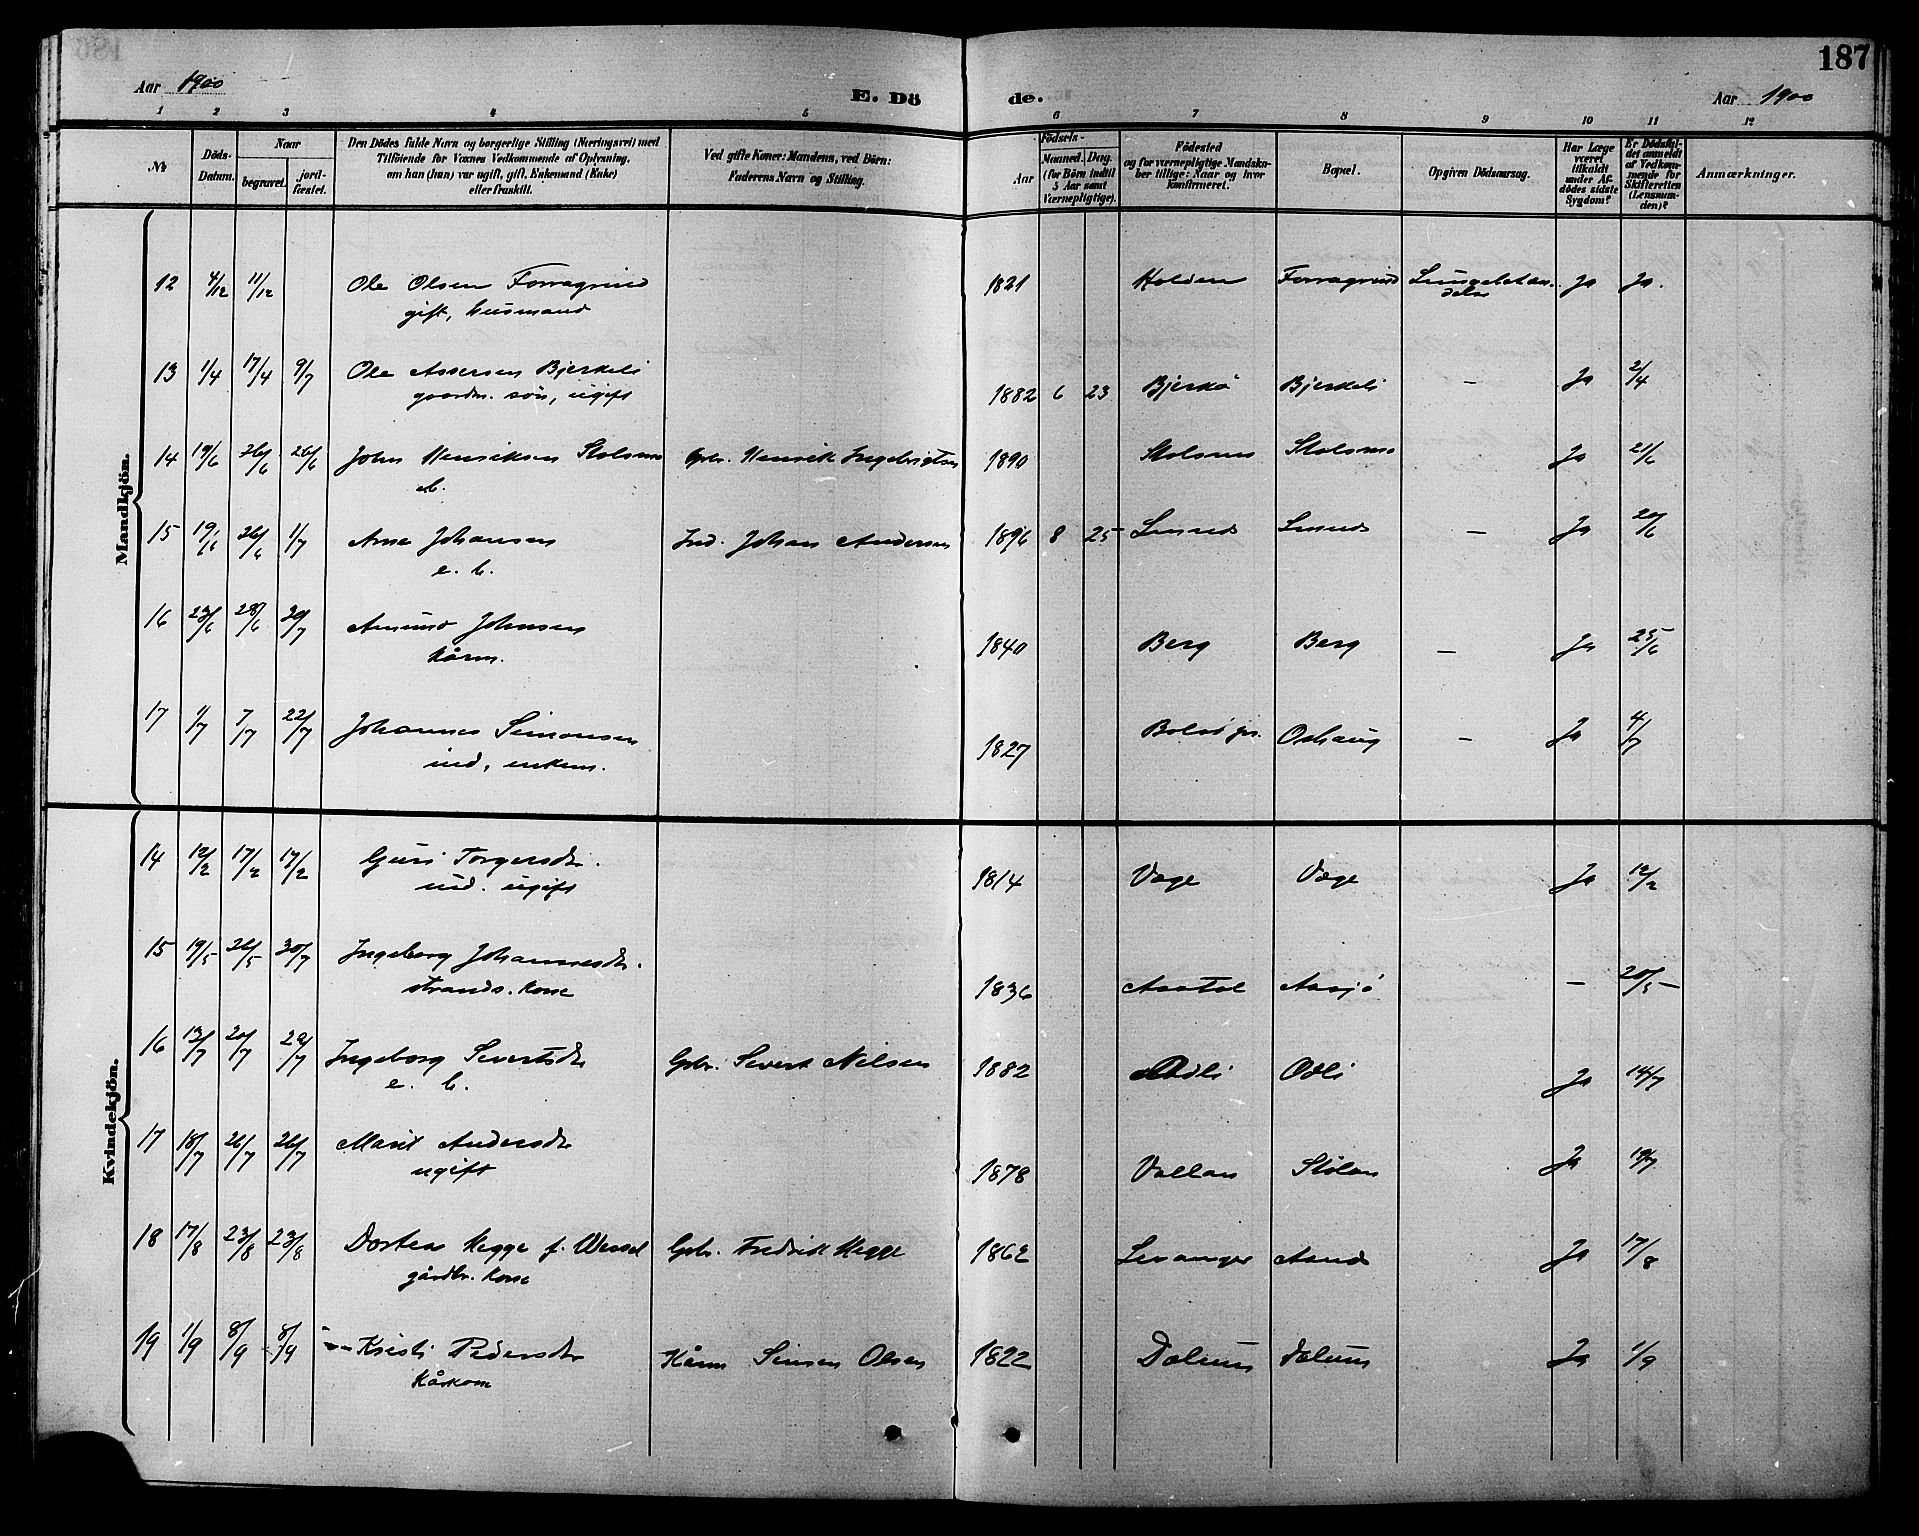 187
Aar 1900
E. Dö
de.
Aar 1900
1 2 3 4 5 6 7 8 9 10 11 12
№
Döds-
Datum.
Naar
begravet.
jord-
fæstet.
Den Dödes fulde Navn og borgerlige Stilling (Næringsvei) med
Tilföiende for Voxnes Vedkommende af Oplysning,
om han (hun) var ugift, gift, Enkemand (Enke)
eller fraskilt.
Ved gifte Koner: Mandens, ved Börn:
Faderens Navn og Stilling.
Födsels-
Aar
Maaned. Dag.
(for Börn indtil
5 Aar samt
Værnepligtige).
Födested
og for værnepligtige Mandska-
ber tillige: Naar og hvor
konfirmeret.
Bopæl.
Opgiven Dödsaarsag.
Har Læge
været
tilkaldt
under Af-
dödes sidste
Sygdom?
Er Dödsfal-
det anmeldt
af Vedkom-
mende for
Skifteretten
(Lensman-
den)?
Anmærkninger.
Mandkjön.
12 4/12 11/12 Ole Olsen Forragrind 1821 Holden Forragrind Ja Ja.
gift, husmand
13 1/4 17/4 9/7 Ole Assersen Bjerkeli 1882 6 23 Bjerkeli - Ja 2/4
gaardm. sön, ugift
14 19/6 26/6 26/6 John Henriksen Gbr. Henrik Ingebrigtsen 1890 Ja 21/6
15 19/6 26/6 1/7 Arne Johansen Ind. Johan Andersen 1896 8 25 - Ja 20/6
e. b.
16 23/6 28/6 Amund Johnsen 1840 Berg Berg - Ja 25/6
kårm.
17 1/7 7/7 22/7 Johannes Simonsen 1827 Bolsö pr. Oshaug - Ja 4/7
ind, enkem.
Kvindekjön.
14 12/2 17/2 17/2 Guri Torgersdr. 1814 Vage Vage Ja 12/2
ind. ugift
15 19/5 26/5 30/7 Ingeborg Johannesdr. 1836 - 20/5
strands. kone
16 13/7 20/7 29/7 Ingeborg Sivertsdr Gbr. Sivert Nilsen 1882 Odli Ja 14/7
e. b.
17 18/7 26/7 26/7 Marit Andersdr 1878 Vollan Stölan Ja 19/7
ugift
18 17/8 23/8 23/8 Dortea Hegge f. Wessel Gbr. Fredrik Hegge 1862 Levanger Aund Ja 17/8
gårdbr. kone
19 1/9 8/9 8/9 Kristi Pedersdr Kårm Simen Olsen 1822 Dalum Dalum Ja 1/9
Kårkone